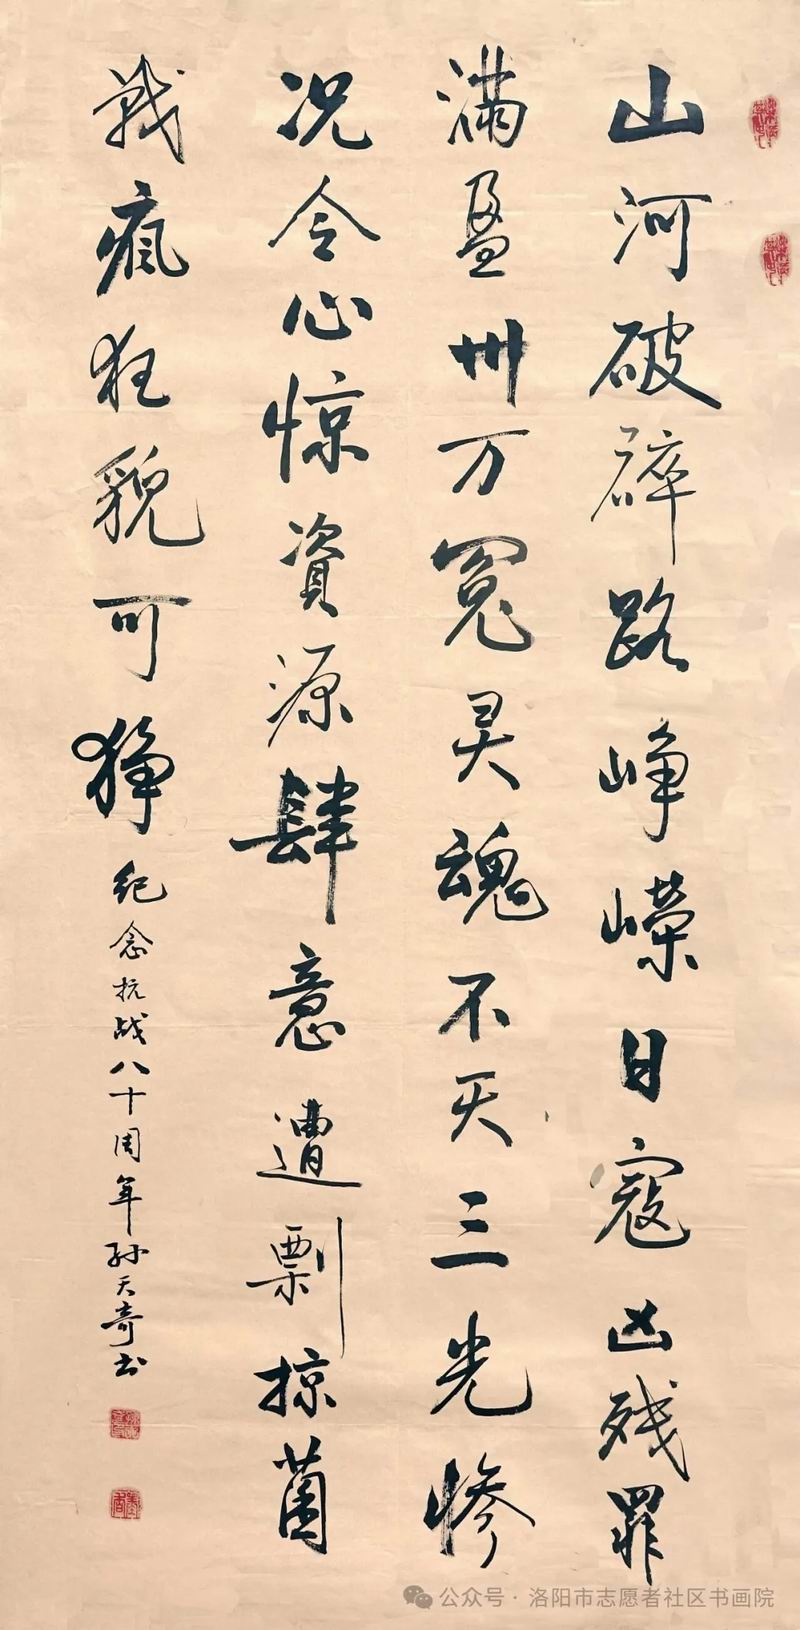 山河破碎路峥嵘日寇凶残罪
满盈卅万冤灵魂不灭三光惨
况令心惊資源肆意遭剽掠菌
战疯狂貌可狰
纪念抗战八十周年孙天奇书
公众号·洛阳市志愿者社区书画院